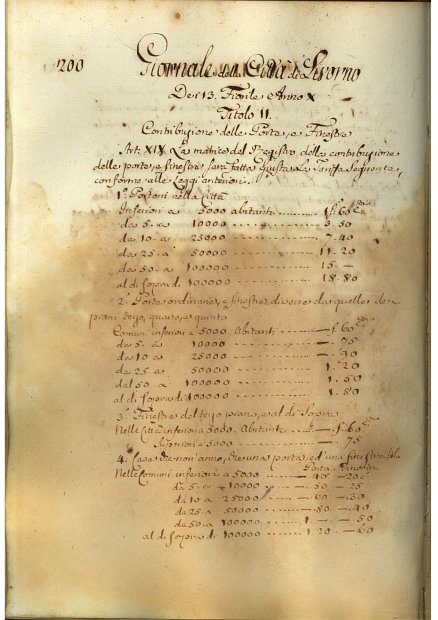 200 Giornale della Città di Livorno
De' 13. Fiorile Anno X
Titolo II.
Contribuzione delle Porte, e Finestre
Art: XIX. La matrice del Registro della contribuzione
delle porte, e finestre sarà fatta giusta la Tariffa Seguente,
conforme alle Leggi anteriori.
1.° Portoni nella Città
Inferiori a 5000 abitanti 1. 60
da 5. a 10000 3. 50
da 10. a 25000 7. 40
da 25. a 50000 11. 20
da 50. a 100000 15. —
al di sopra di 100000 18. 80
2.° Porte ordinarie, e finestre diverse da quelle de'
piani terzo, quarto, e quinto
Comuni inferiori a 5000 Abitanti — 60
da 5. a 10000 — 75
da 10 a 25000 — 90
da 25. a 50000 1. 20
dal 50. a 100000 1. 50
al di sopra di 100000 1. 80
3.° Finestre del terzo piano, e al di Sopra
Nelle Città inferiori a 5000. Abitanti — 60
Superiori a 5000 — 75
4. Case che non anno, che una porta, e d'una finestra sola
Porta Finestra
Nelle Comuni inferiori a 5000 — 40 — 20
da 5. a 10000 — 50 — 25
da 10. a 25000 — 60 — 30
da 25. a 50000 — 80 — 40
da 50. a 100000 1. — — 50
al di sopra di 100000 1. 20 — 60